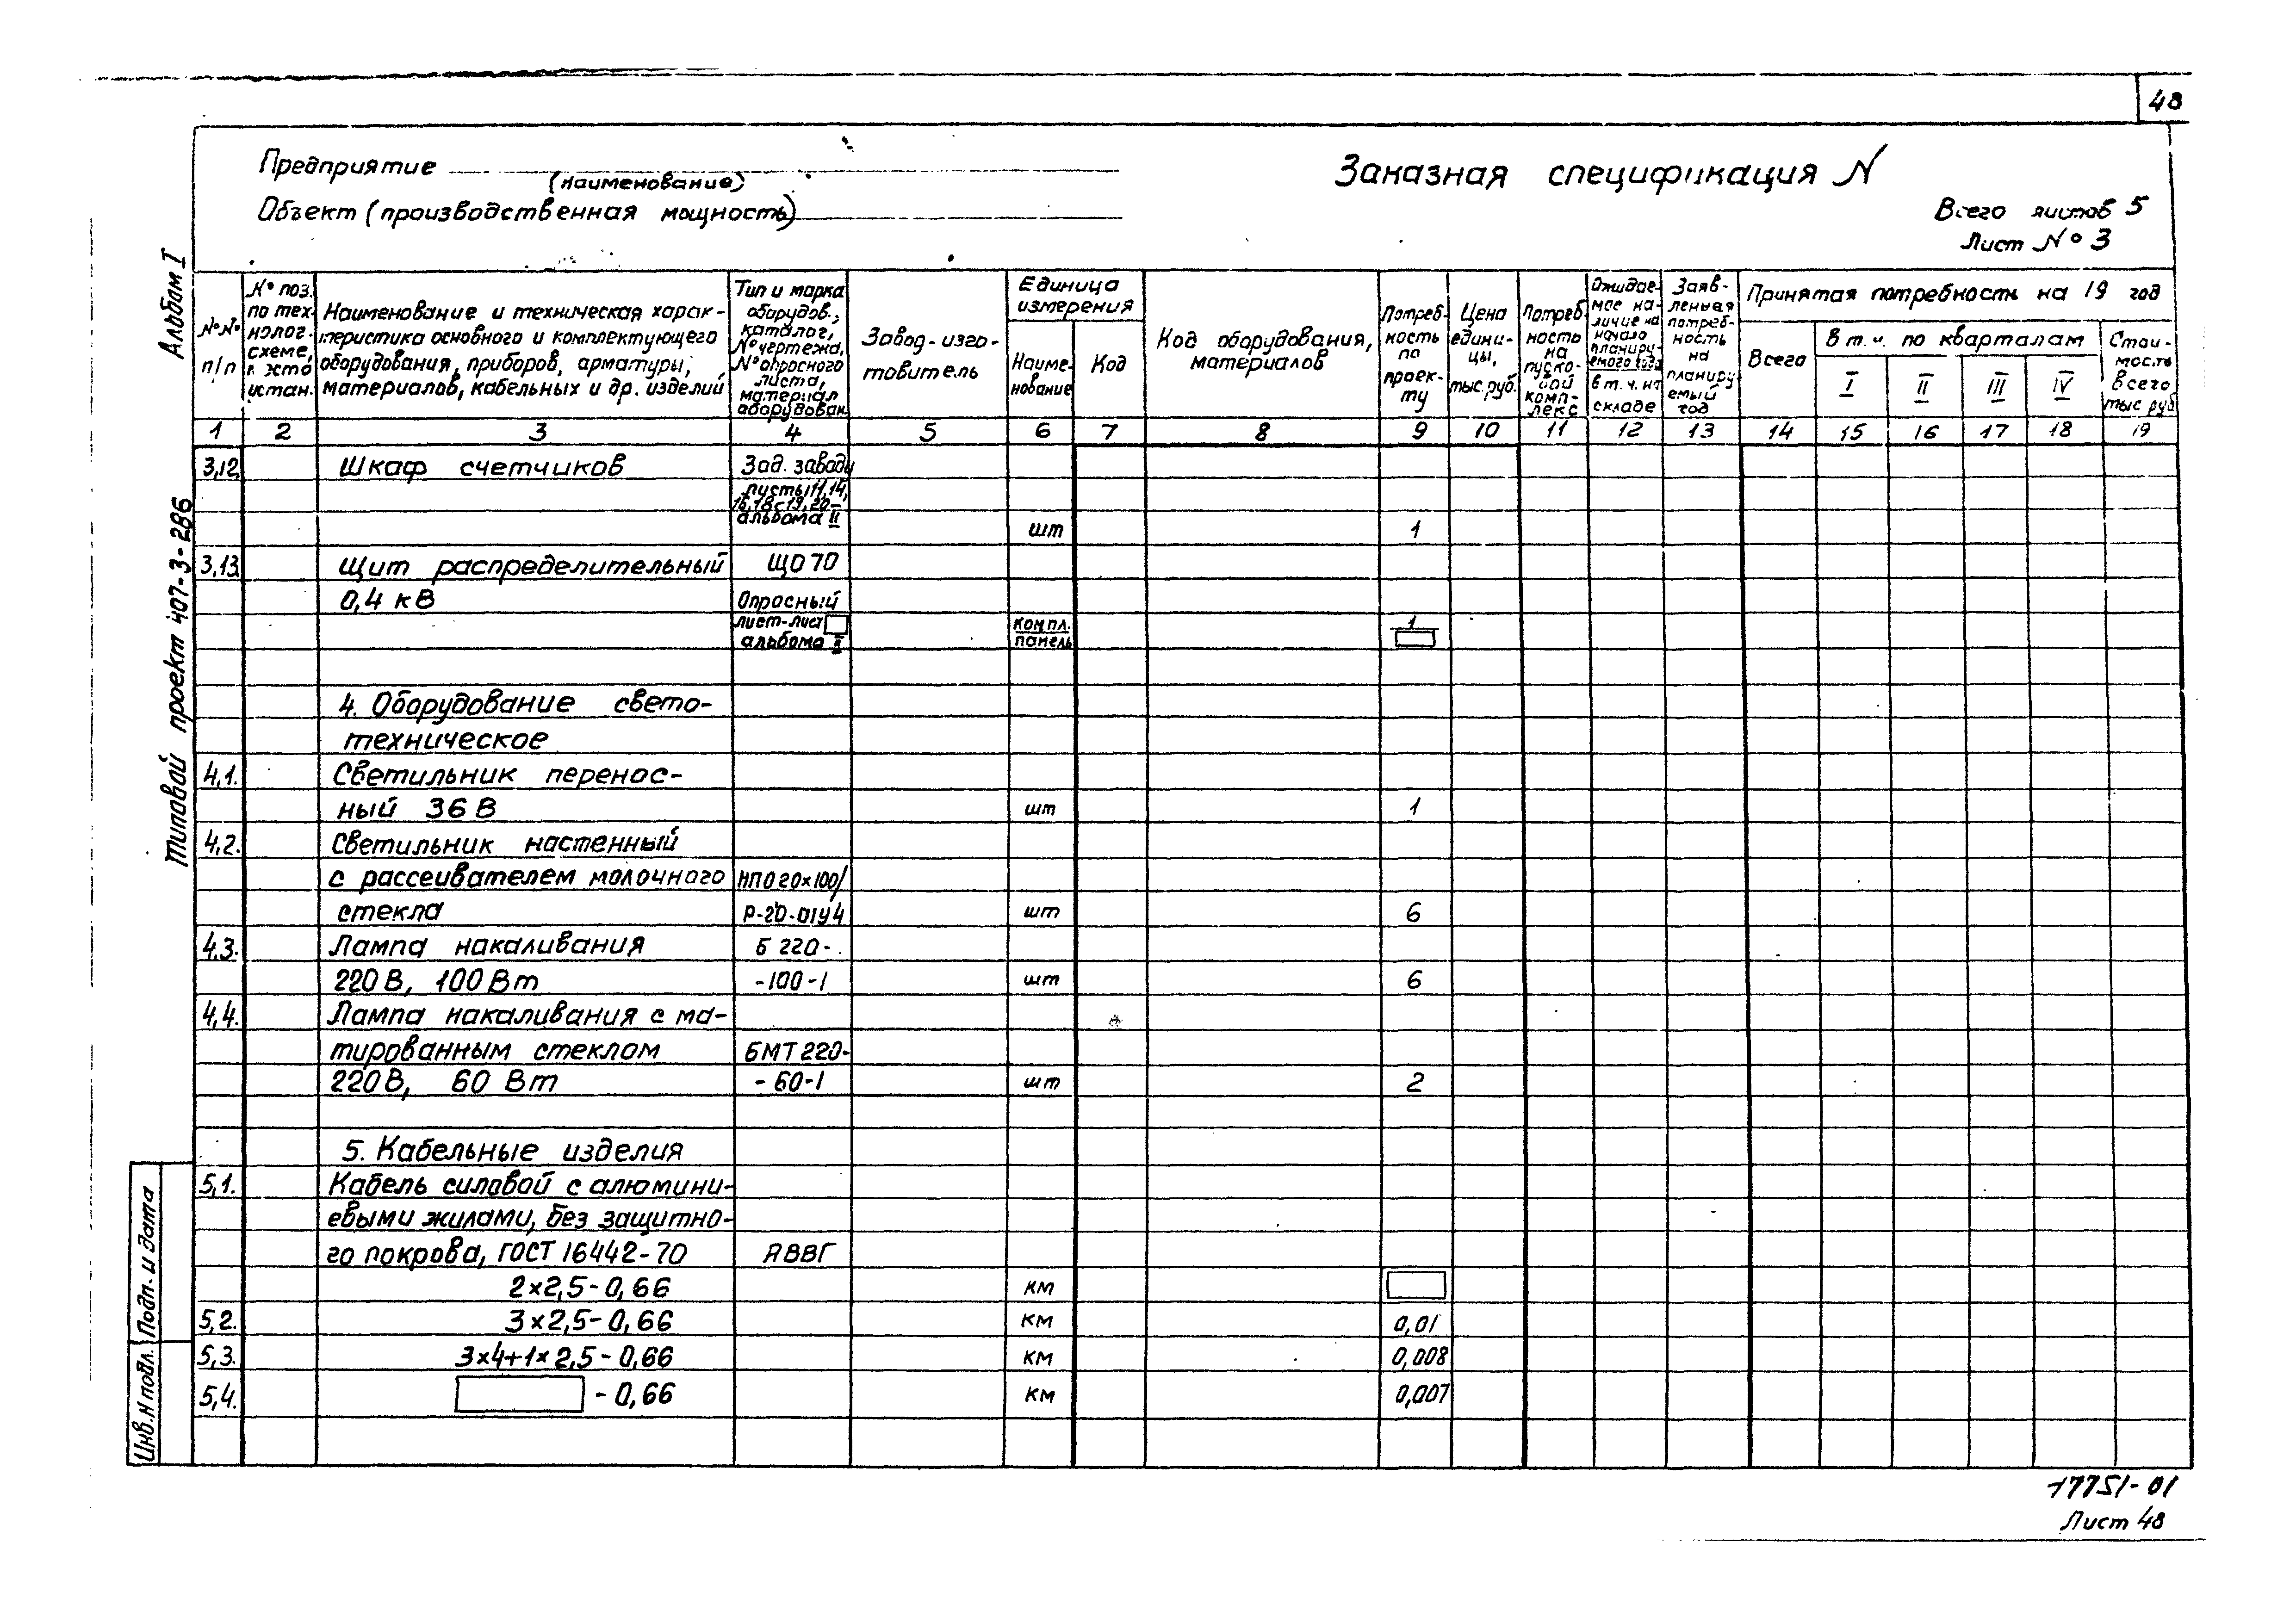 48
Предприятие
(наименование)
Объект (производственная мощность)
Заказная спецификация N
Всего листов 5
Лист № 3
Альбом I
Типовой проект 407-3-286
Подп. и дата
Инв. N подл.
№№ п/п
№ поз. по технолог. схеме,
устан.
Наименование и техническая харак-
теристика основного и комплектующего
оборудования, приборов, арматуры,
материалов, кабельных и др. изделий
Тип и марка
оборудов.,
каталог,
№ чертежа,
№ опросного
листа,
материал
оборудован.
Завод-изго-
товитель
Единица
измерения
Наиме-
нование
Код
Код оборудования,
материалов
Потреб-
ность
по
проек-
ту
Цена
едини-
цы,
тыс.руб.
Потреб-
ность
на
пуско-
вой
комп-
лекс
Ожидае-
мое на-
личие на
начало
планиру-
емого года
в т. ч. на
складе
Заяв-
ленная
потреб-
ность
на
планиру-
емый
год
Принятая потребность на 19 год
Всего
В т. ч. по кварталам
I II III IV
Стои-
мость
всего
тыс руб
1 2 3 4 5 6 7 8 9 10 11 12 13 14 15 16 17 18 19
3,12. Шкаф счетчиков Зад. заводу
листы 11, 14,
16, 18÷19, 20-
альбома II шт 1
3,13. Щит распределительный ЩО 70
0,4 кВ Опросный
лист-лист
альбома II
компл. 1
панель
4. Оборудование свето-
техническое
4,1. Светильник перенос-
ный 36 В шт 1
4,2. Светильник настенный
с рассеивателем молочного НПО20×100/
стекла Р-20-01У4 шт 6
4,3. Лампа накаливания Б 220-
220 В, 100 Вт -100-1 шт 6
4,4. Лампа накаливания с ма-
тированным стеклом БМТ 220-
220 В, 60 Вт - 60-1 шт 2
5. Кабельные изделия
5,1. Кабель силовой с алюмини-
евыми жилами, без защитно-
го покрова, ГОСТ 16442-70 АВВГ
2×2,5-0,66 км
5,2. 3×2,5-0,66 км 0,01
5,3. 3×4+1×2,5-0,66 км 0,008
5,4. -0,66 км 0,007
17751-01
Лист 48